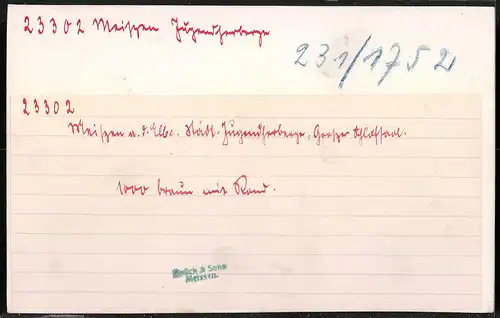 23302 Meißen Jugendherberge
231/1752
23302
Meißen a. d. Elbe. Städt. Jugendherberge, Großer Schlafsaal.
1000 braun mit Rand.
Brück & Sohn
Meissen.